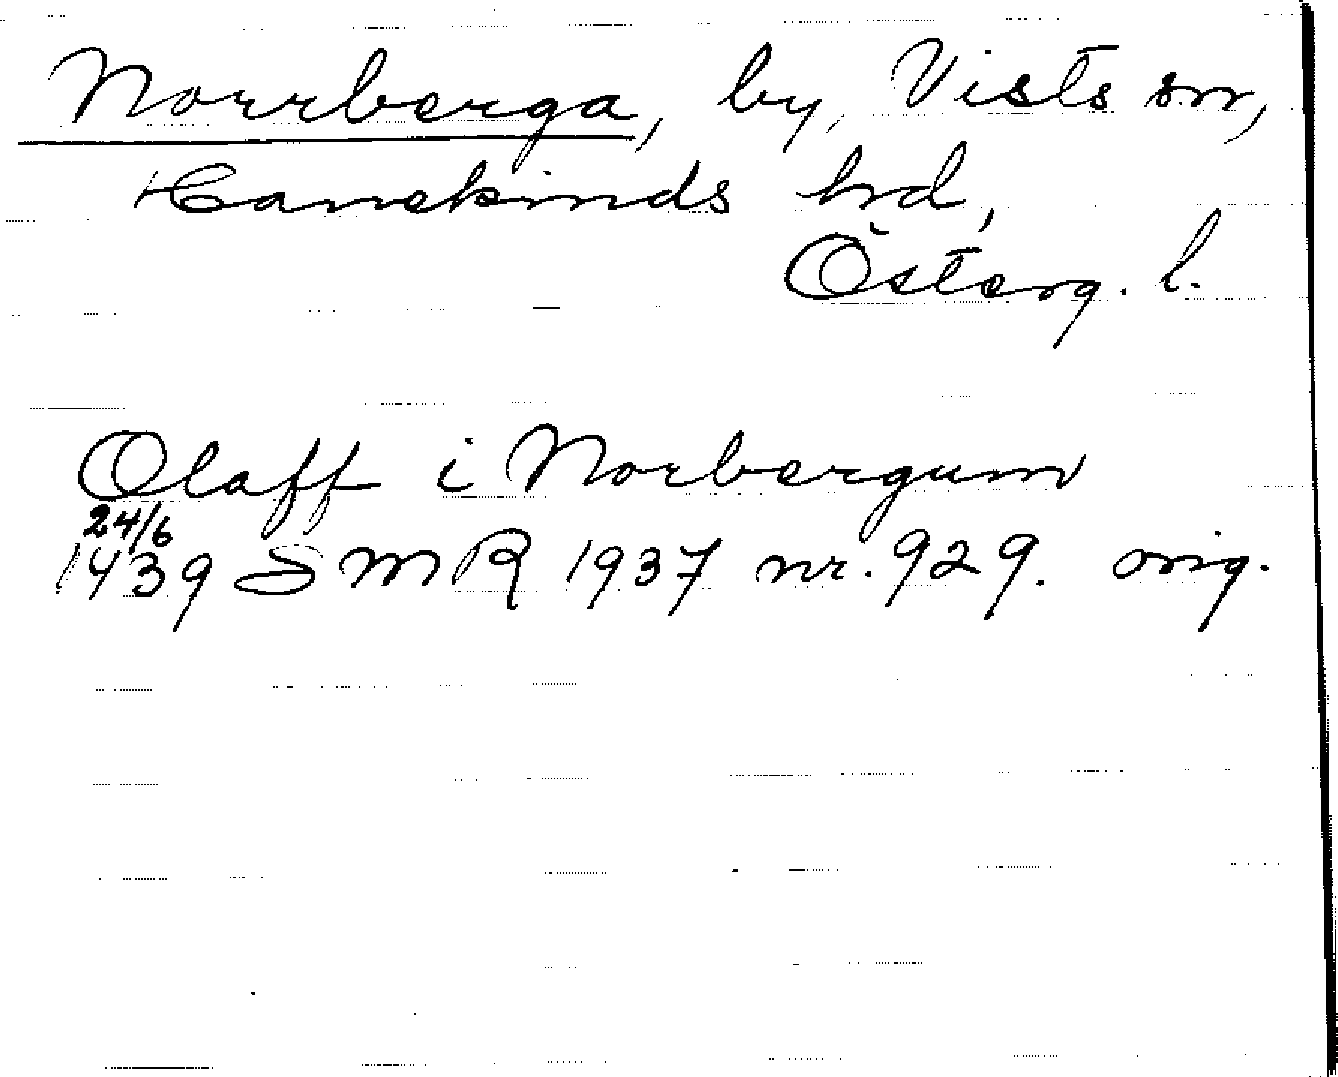 Norrberga, by, Vists sn,
Hanekinds hd,
Österg. l.
Olaff i Norbergum
24/6
1439 SMR 1937 nr. 929. orig.